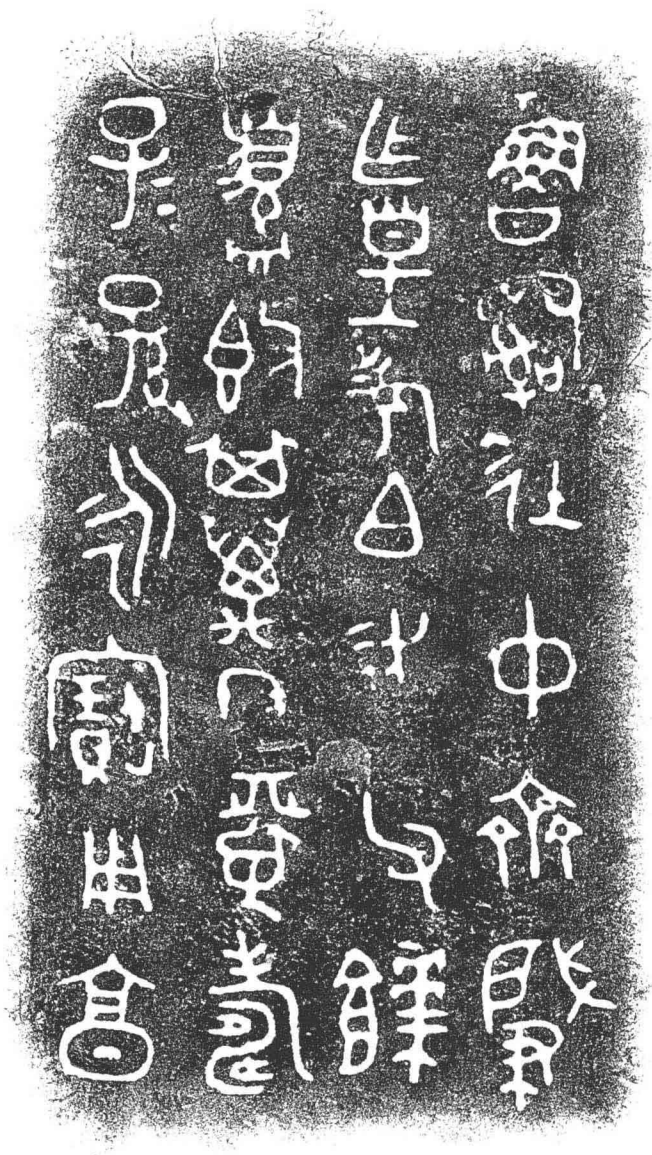 魯𤔲徒中齊肈
乍皇考白走父餴
盨𣪘其萬年眉壽
子=孫=永寶用亯